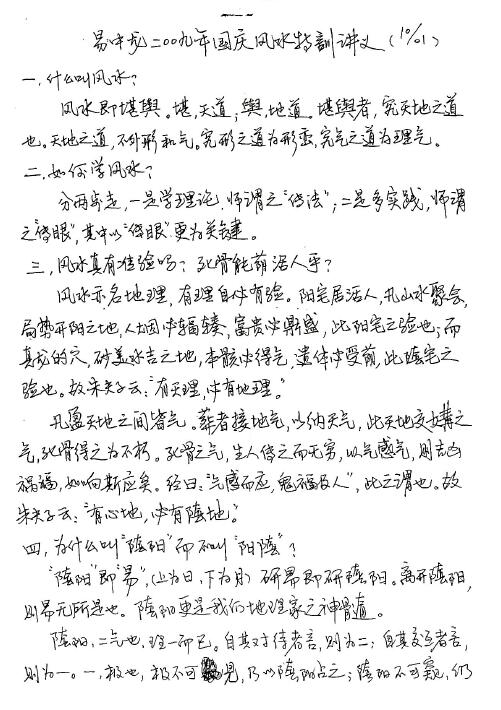 易中龙二00九年国庆风水特訓讲义(10/01)
一.什么叫风水?
风水即堪舆。堪,天道;舆,地道。堪舆者,究天地之道
也。天地之道,不外形和气。究形之道为形峦,究气之道为理气。
二.如何学风水?
分两步走,一是学理论,师谓之“传法”;二是多实践,师谓
之“传眼”,其中以“传眼”更为关键。
三.风水真有准验吗?死骨能荫活人乎?
风水亦名地理,有理自必有验。阳宅居活人,凡山水聚会,
局势开阳之地,人烟必辐辏,富贵必鼎盛,此阳宅之验也;而
真龙的穴,砂美水吉之地,本骸必得气,遗体必受荫,此陰宅之
验也。故朱夫子云:“有天理,必有地理。”
凡盈天地之间皆气。葬者接地气,以纳天气,此天地交媾之
气,死骨得之为不朽。死骨之气,生人得之而无穷,以气感气,则吉凶
祸福,如响斯应矣。经曰:“气感而应,鬼福及人”,此之谓也。故
朱夫子云:“有心地,必有陰地。”
四.为什么叫“陰阳”而不叫“阳陰”?
“陰阳”即“易”,(上为日,下为月)研易即研陰阳。离开陰阳,
则易无所是也。陰阳更是我们地理家之神髓道。
陰阳,二气也,理一而已。自其对待者言,则为二;自其交互者言,
则为一。一,极也,极不可見,乃以陰阳占之;陰阳不可窥,仍